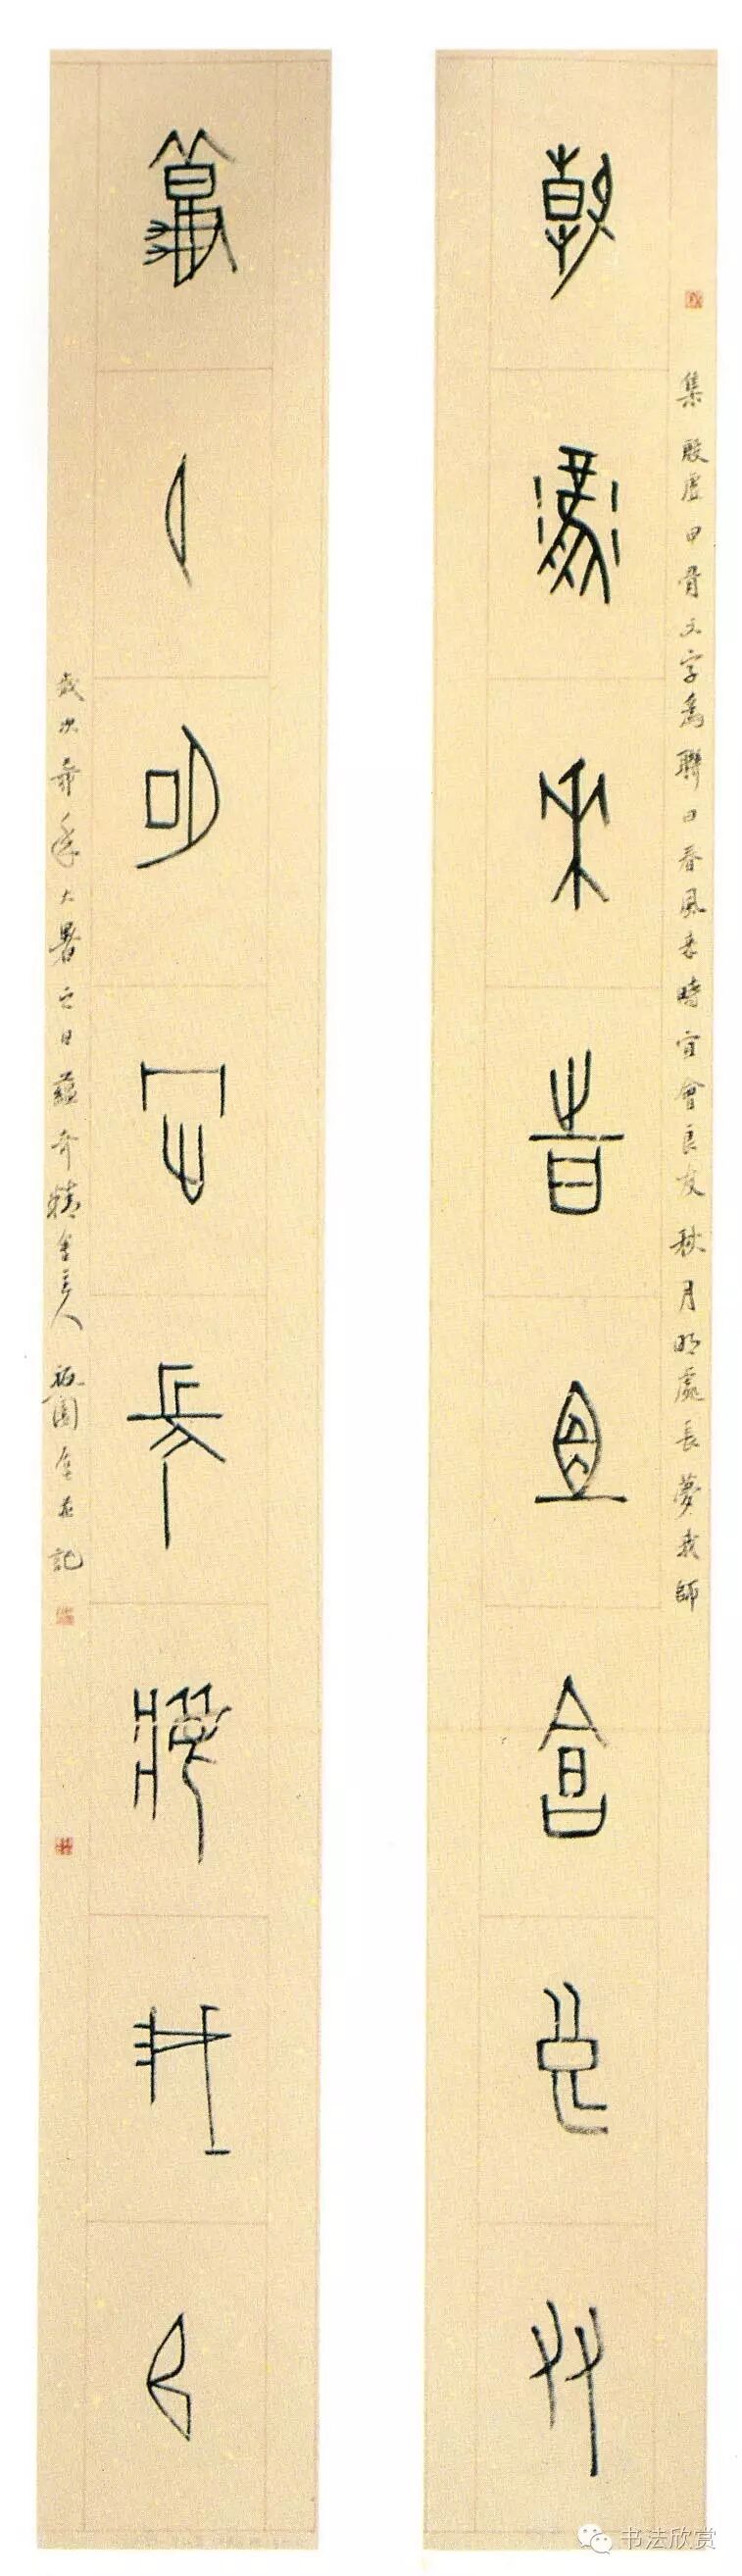 集殷虛甲骨文字為聯曰春風來時宜會良友秋月明處長夢我師
春風來時宜會良友
秋月明處長夢我師
歲次年大暑之日精舍主人記
书法欣赏